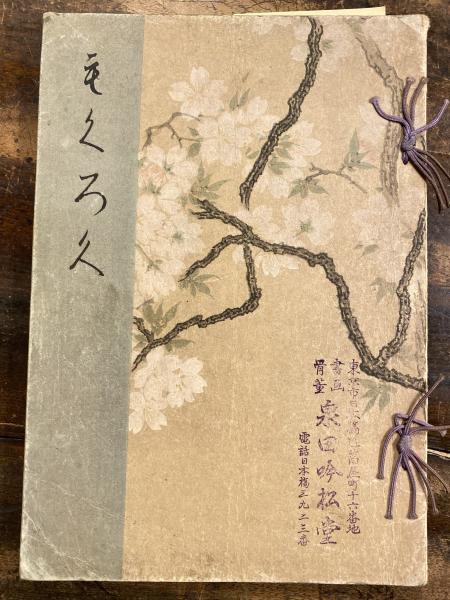 もくろく
東京市日本橋區
町十六番地
書画
骨董
泉田吟松堂
電話日本橋三九二三番